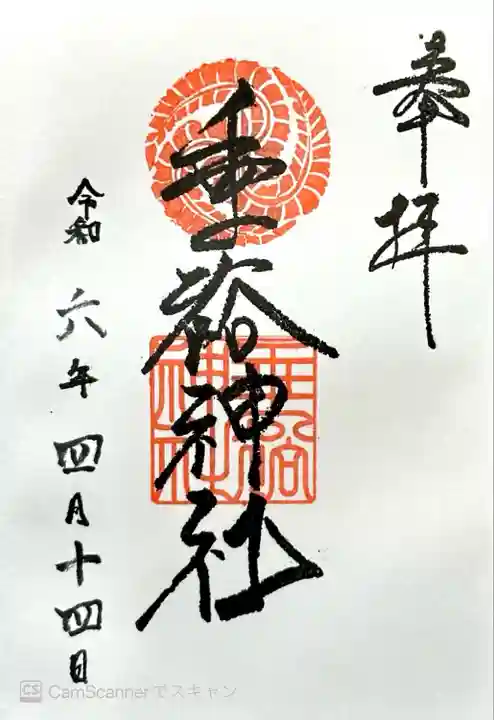 奉拝
重谷神社
令和六年四月十四日
CS CamScannerでスキャン